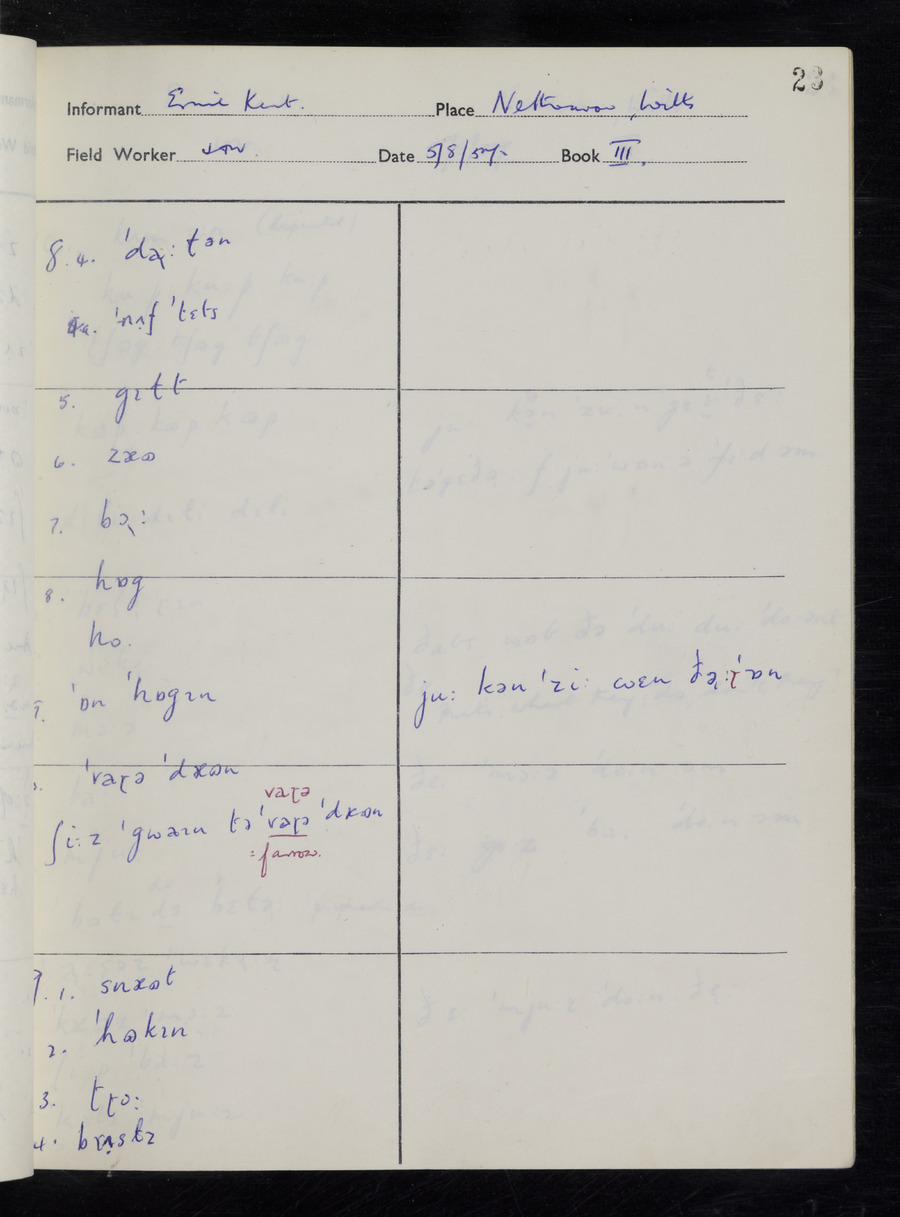 23
Informant Ernie Kent. Place Netheravon, Wilts
Field Worker Date 5/8/54 Book III.
8.4. ˈdaː tən
4a. ˈrʌf ˈtɛts
5. gɪɫt
6. zæɷ
7. bɔː
8. hɒg
hɒ.
9. ˈɒn ˈhɒgɪn
juː kən ˈziː wɛn ðəːɽˈɒn
ˈvaɽə ˈdæɷn
vaɽə
ʃiːz ˈgwəɪn tə ˈvaɽə ˈdæɷn
= farrow.
9.1. snæɷt
2. ˈhɷkɪn
3. tɽoː
4. bɽʌstz